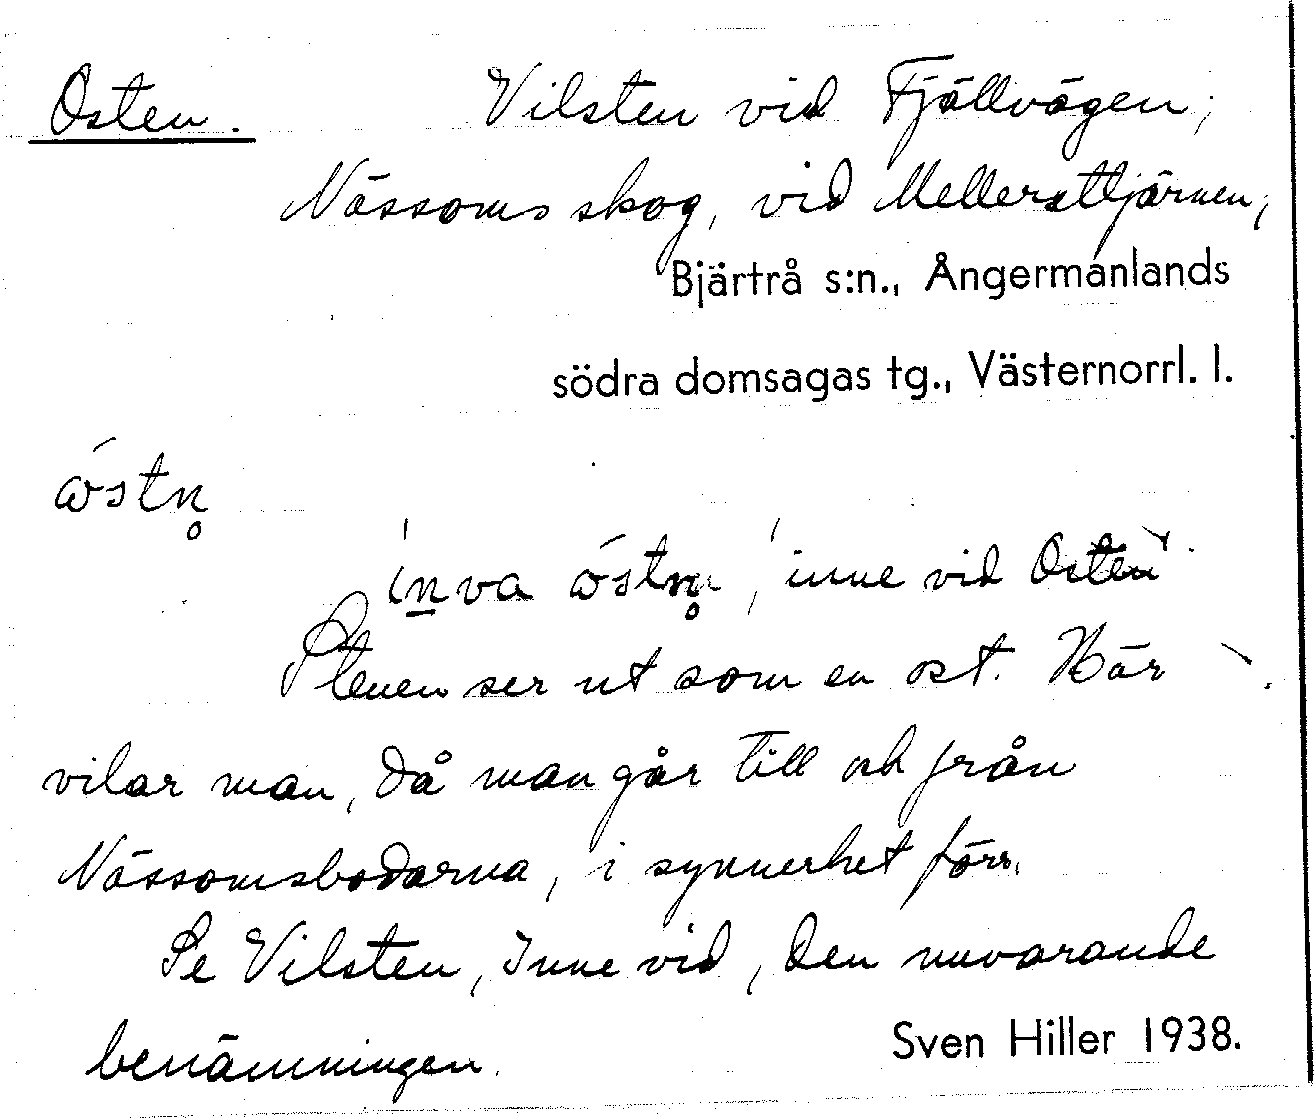 Osten. Vilsten vid Fjällvägen,
Nässoms skog, vid Mellersttjärnen,
Bjärtrå s:n., Ångermanlands
södra domsagas tg., Västernorrl. l.
ɷ́stn̥
ín va ɷ́stn̥, 'inne vid Osten'.
Stenen ser ut som en ost. Här
vilar man, då man går till och från
Nässomsbodarna, i synnerhet förr.
Se Vilsten, Inne vid, den nuvarande
benämningen.
Sven Hiller 1938.